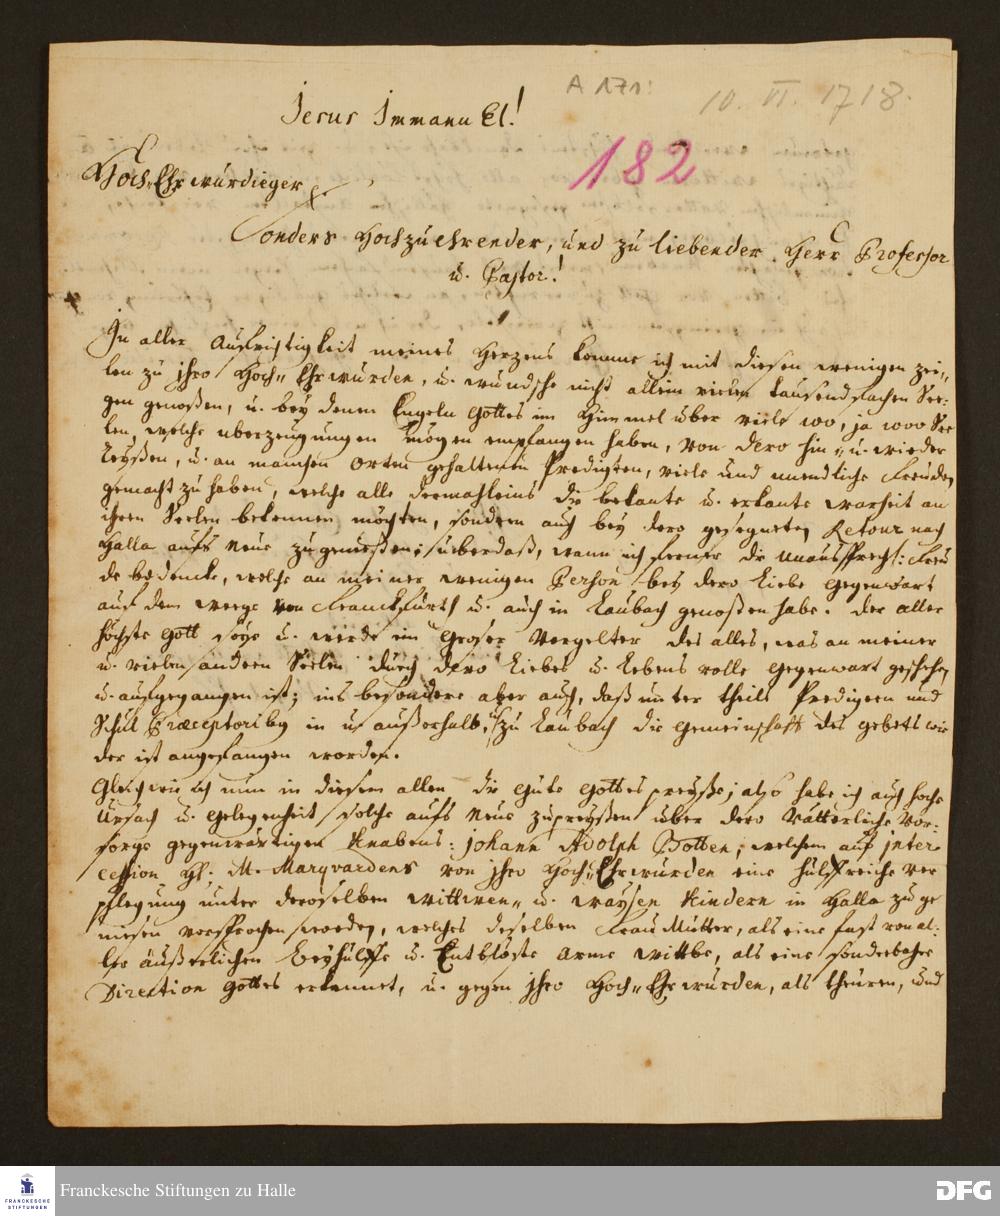 A 171:
10. VI. 1718.
Jesus Immanu El!
182
Hoch Ehrwürdieger
Sonders Hochzuehrender, und zu liebender Herr Professor
u. Pastor!
In aller Aufrichtigkeit meines Hertzens komme ich mit diesen wenigen zei„
len zu jhro Hoch„ Ehrwürden, u. wündsche nicht allein vielen tausendfachen See:
gen genoßen, u. bey denen Engeln Gottes im Himmel über viele 100, ja 1000 See
len, welche uberzeugungen mögen empfangen haben, von dero hin„ u. wieder
reyßen, u. an manchen orten gehaltenen Predigten, viele und unendliche Freuden
gemacht zu haben, welche alle dermahleins die bekante u. erkante warheit an
ihren Seelen bekennen möchten, sondern auch bey dero gesegneten Retour nach
Halla aufs neue zugenießen; überdaß, wann ich ferner die unaussprechl: Freu
de bedencke, welche an meiner wenigen Person bey dero Liebe gegenwart
auf dem weege von Franckfurth u. auch in Laubach genoßen habe. Der aller
höchste Gott seye u. werde ein Großer Vergelter des alles, was an meiner
u. vielen andern Seelen durch dero Liebes u. Lebens volle gegenwart geschehen
u. aufgegangen ist; ins besondere aber auch, daß unter theils Predigern und
Schul Præceptoribq in u. außerhalb, zu Laubach die Gemeinschafft des gebets wie
der ist angefangen worden.
Gleichwie ich nun in diesem allen die Güte Gottes preyße; also habe ich auch hohe
Ursach u. Gelegenheit solche aufs neue zupreyßen über dero Vätterliche Vor:
sorge gegenwärtigen Knabens: Johann Adolph Botten, welchem auf inter-
cession H. M. Marqvardens von jhro Hoch„ Ehrwürden eine hülffreiche Ver
pflegung unter deroselben wittwen„ u. waysen Kindern in Halla zu ge
niesen versprochen worden, welches deßelben Frau Mutter, als eine fast von al:
ler äußerlichen Beyhülffe u. Entblöste arme wittbe, als eine sonderbahre
Direction Gottes erkennet, u. gegen jhro Hoch„ Ehrwürden, als theuren, und
FRANCKESCHE STIFTUNGEN
Franckesche Stiftungen zu Halle
DFG